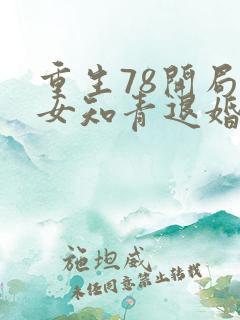 重生78开局
女知青退婚
施坦威
未经同意禁止转载